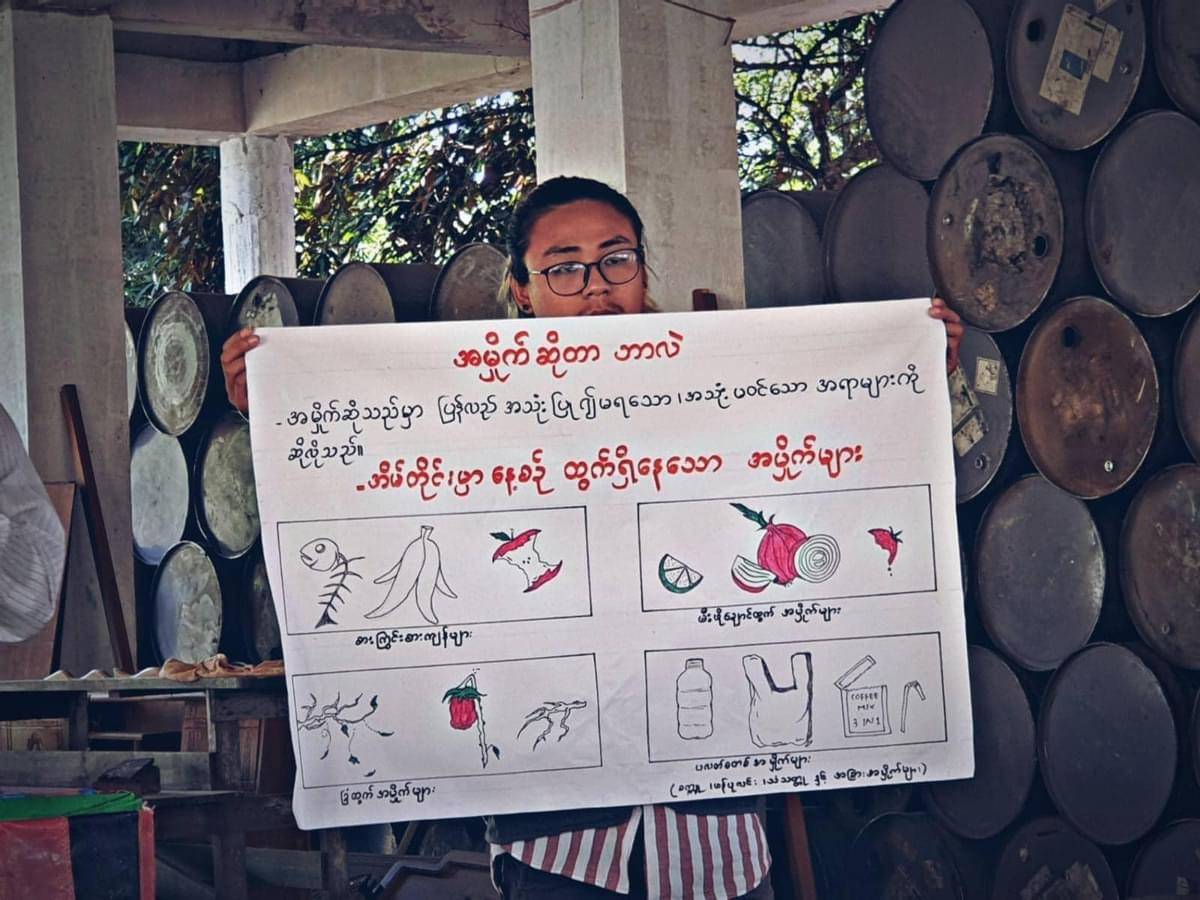 အမှိုက်ဆိုတာ ဘာလဲ
- အမှိုက်ဆိုသည်မှာ ပြန်လည် အသုံးပြု၍မရသော ၊အသုံးမဝင်သော အရာများကို
ဆိုလိုသည်။
- အိမ်တိုင်းမှာ နေ့စဉ် ထွက်ရှိနေသော အမှိုက်များ
စားကြွင်းစားကျန်များ
မီးဖိုချောင်ထွက် အမှိုက်များ
COFFEE
MIX
3 IN 1
ခြံထွက် အမှိုက်များ
ပလတ်စတစ် အမှိုက်များ
(စက္ကူ ၊ဖန်ပုလင်း ၊သံသတ္တု နှင့် အခြားအမှိုက်များ)